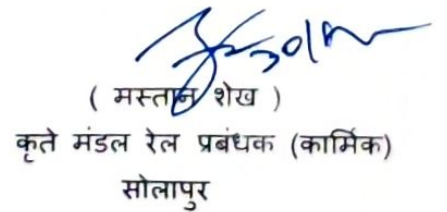 ( मस्तान शेख )
कृते मंडल रेल प्रबंधक (कार्मिक)
सोलापुर